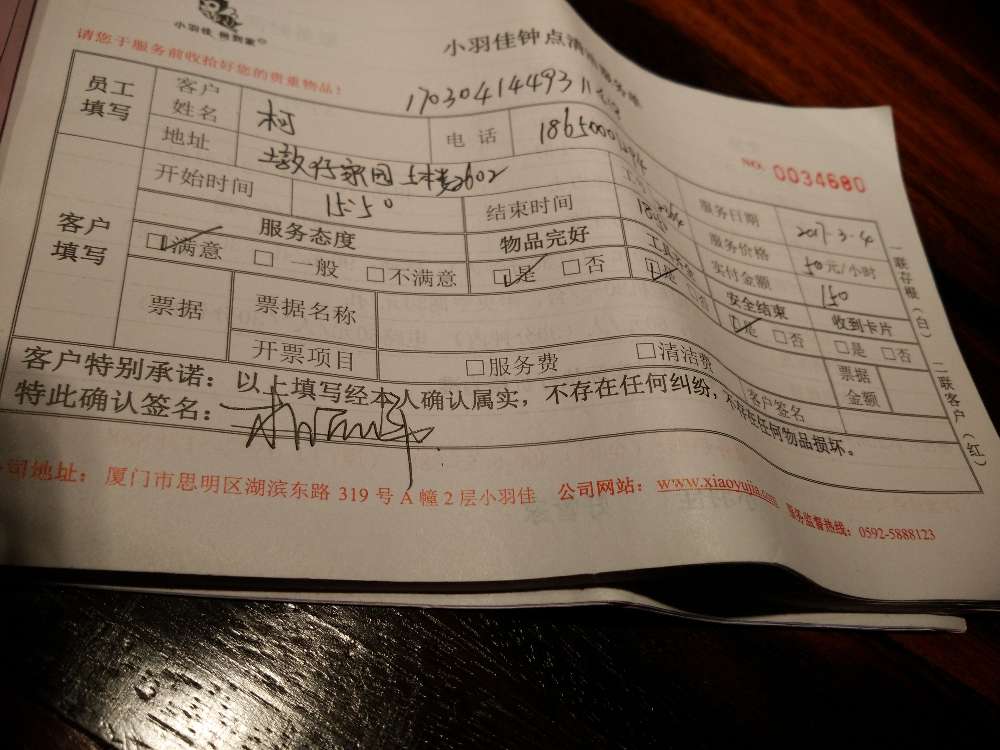 小羽佳 
小羽佳钟点清
请您于服务前收拾好您的贵重物品!
NO. 0034680
员工填写 客户姓名 柯 电话
服务日期 2017.3.4
地址
服务价格 50元/小时
客户填写 开始时间 15:50 结束时间
实付金额 150
服务态度 物品完好 安全结束 收到卡片
满意 一般 不满意 是 否 是 否 是 否
票据 票据名称
开票项目 服务费 清洁费 票据金额
客户签名
客户特别承诺：以上填写经本人确认属实，不存在任何纠纷，不存在任何物品损坏。
特此确认签名：
司地址：厦门市思明区湖滨东路 319 号 A 幢 2 层小羽佳 公司网站：www.xiaoyujia.com 服务监督热线：0592-5888123
一联存根（白） 二联客户（红）